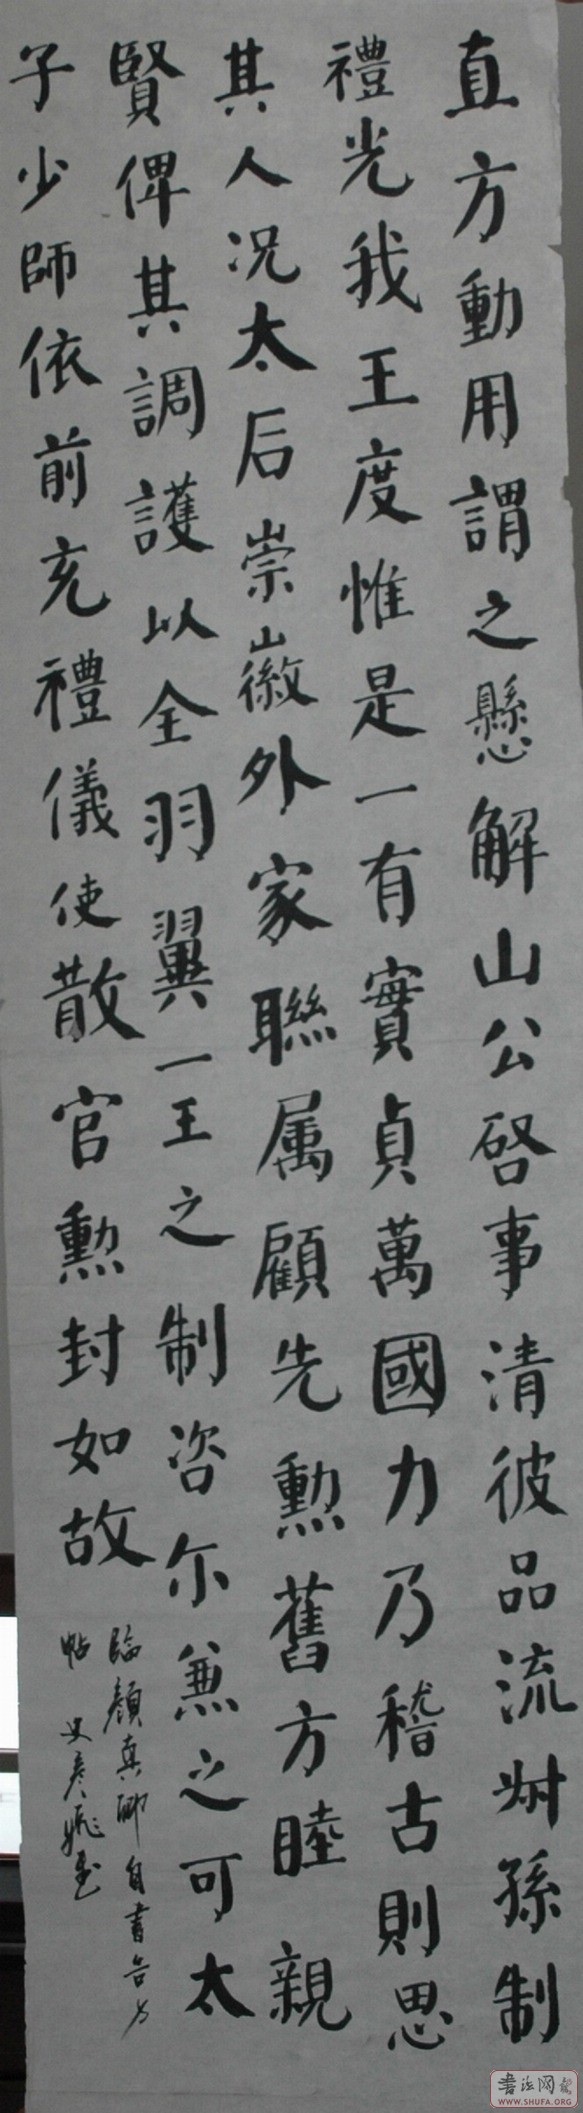 直方動用謂之懸解山公啓事清彼品流叔孫制
禮光我王度惟是一有實貞萬國力乃稽古則思
其人況太后崇徽外家聯属顧先勲舊方睦親
賢俾其調護以全羽翼一王之制咨尔兼之可太
子少師依前充禮儀使散官勲封如故
臨顏真卿自書告身
帖 史彦
書法网
WWW.SHUFA.ORG